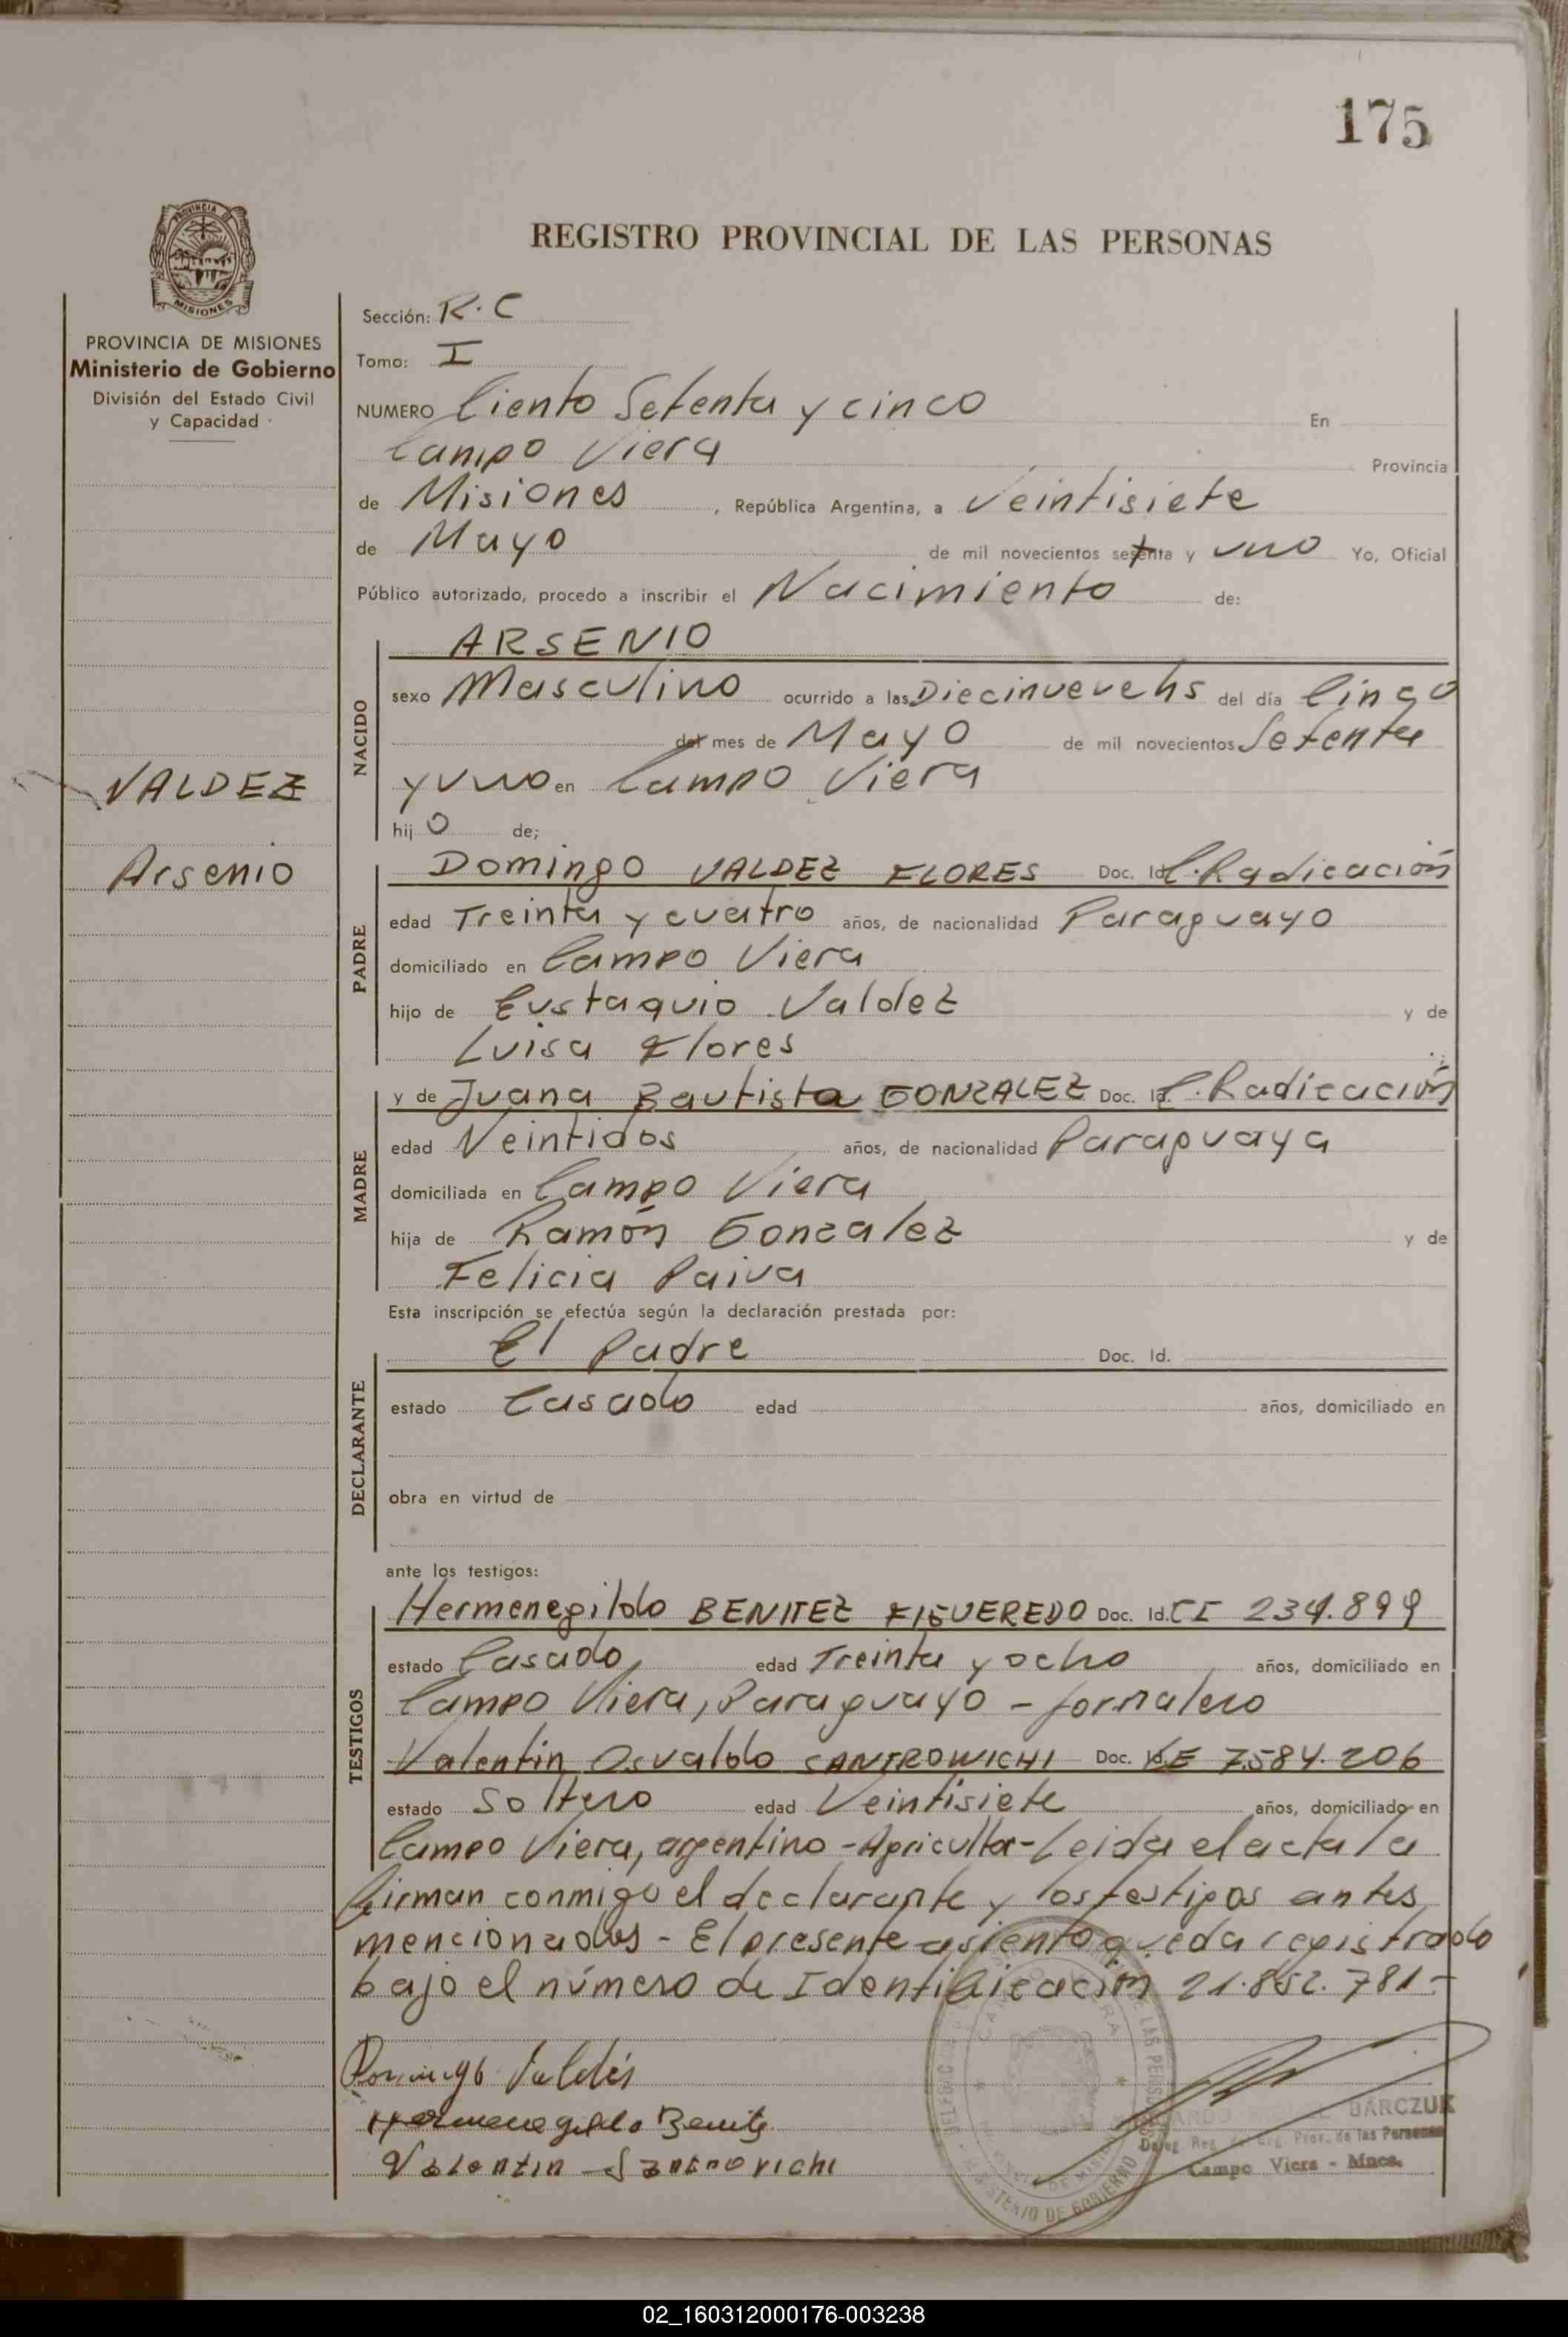 175
PROVINCIA DE
MISIONES
REGISTRO PROVINCIAL DE LAS PERSONAS
PROVINCIA DE MISIONES
Ministerio de Gobierno
División del Estado Civil
y Capacidad
VALDEZ
Arsenio
Sección: R.C
Tomo: I
NUMERO Ciento Setenta y cinco En
Campo Viera Provincia
de Misiones, República Argentina, a Veintisiete
de Mayo de mil novecientos setenta y uno Yo, Oficial
Público autorizado, procedo a inscribir el Nacimiento de:
NACIDO
ARSENIO
sexo Masculino ocurrido a las Diecinueve hs del día Cinco
del mes de Mayo de mil novecientos Setenta
y uno en Campo Viera
hijo de;
PADRE
Domingo VALDEZ FLORES Doc. Id. C.Radicación
edad Treinta y cuatro años, de nacionalidad Paraguayo
domiciliado en Campo Viera
hijo de Eustaquio Valdez y de
Luisa Flores
MADRE
y de Juana Bautista GONZALEZ Doc. Id. C.Radicación
edad Veintidos años, de nacionalidad Paraguaya
domiciliada en Campo Viera
hija de Ramón Gonzalez y de
Felicia Paiva
Esta inscripción se efectúa según la declaración prestada por:
DECLARANTE
El Padre Doc. Id.
estado Casado edad años, domiciliado en
obra en virtud de
ante los testigos:
TESTIGOS
Hermenegildo BENITEZ FIGUEREDO Doc. Id. CI 234.899
estado Casado edad Treinta y ocho años, domiciliado en
Campo Viera, Paraguayo - Jornalero
Valentin Osvaldo SANTROWICHI Doc. Id. LE 7.584.206
estado Soltero edad Veintisiete años, domiciliado en
Campo Viera, argentino - Agricultor - Leida el acta la
firman conmigo el declarante y los testigos antes
mencionados - El presente asiento queda registrado
bajo el número de Identificación 21.852.781.-
Domingo Valdés
Hermenegildo Benite
Valentin
BARCZUK
Reg. Prov. de las Personas
Campo Viera - Mnes.
MINISTERIO DE GOBIERNO
02_160312000176-003238